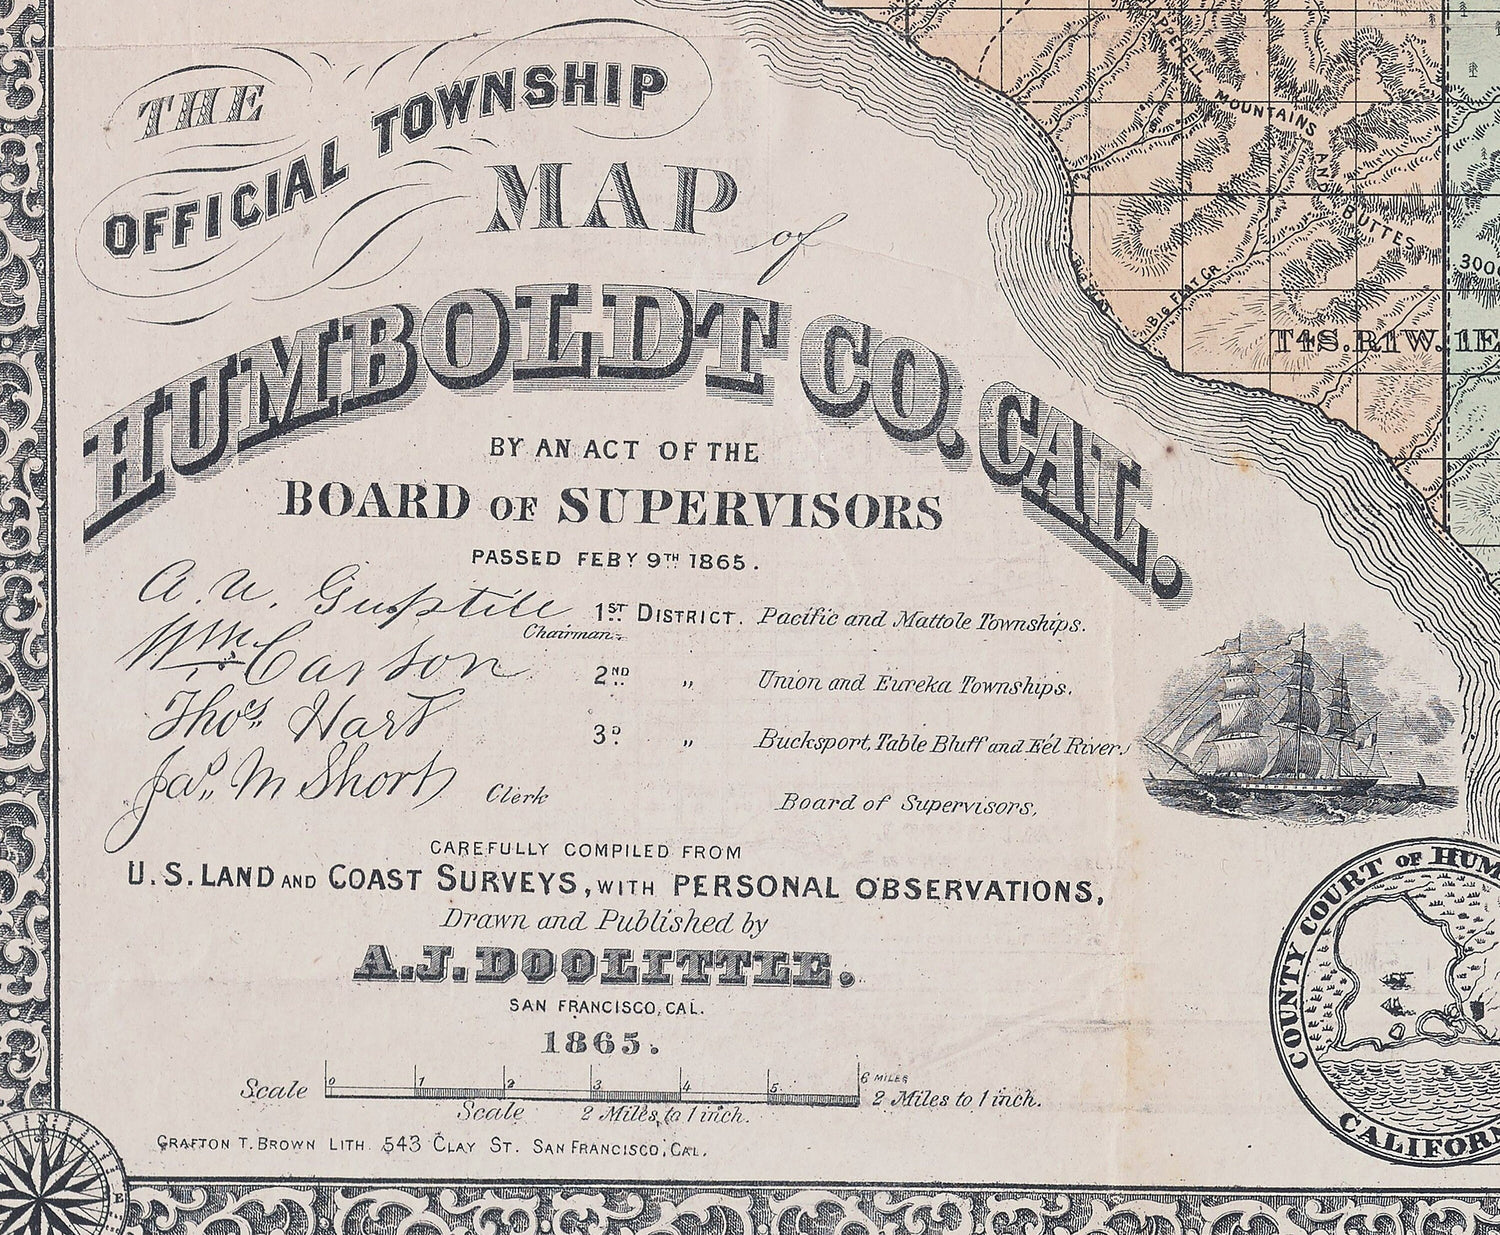 THE
OFFICIAL TOWNSHIP
MAP of
HUMBOLDT CO. CAL.
BY AN ACT OF THE
BOARD OF SUPERVISORS
PASSED FEBY 9TH 1865.
A. U. Guptill 1ST DISTRICT. Pacific and Mattole Townships.
Chairman.
Wm. Carson 2ND „ Union and Eureka Townships.
Thos. Hart 3D „ Bucksport, Table Bluff and Eel River.
Jas. M Short Clerk Board of Supervisors,
CAREFULLY COMPILED FROM
U.S. LAND AND COAST SURVEYS, WITH PERSONAL OBSERVATIONS,
Drawn and Published by
A. J. DOOLITTLE.
SAN FRANCISCO, CAL.
1865.
Scale 0 1 2 3 4 5 6 MILES 2 Miles to 1 inch.
Scale 2 Miles to 1 inch.
GRAFTON T. BROWN LITH. 543 CLAY ST. SAN FRANCISCO, CAL.
MOUNTAINS AND BUTTES
BIG FLAT CR
300
T4S.R1W. 1E
COUNTY COURT OF HUM
CALIFOR
N
E